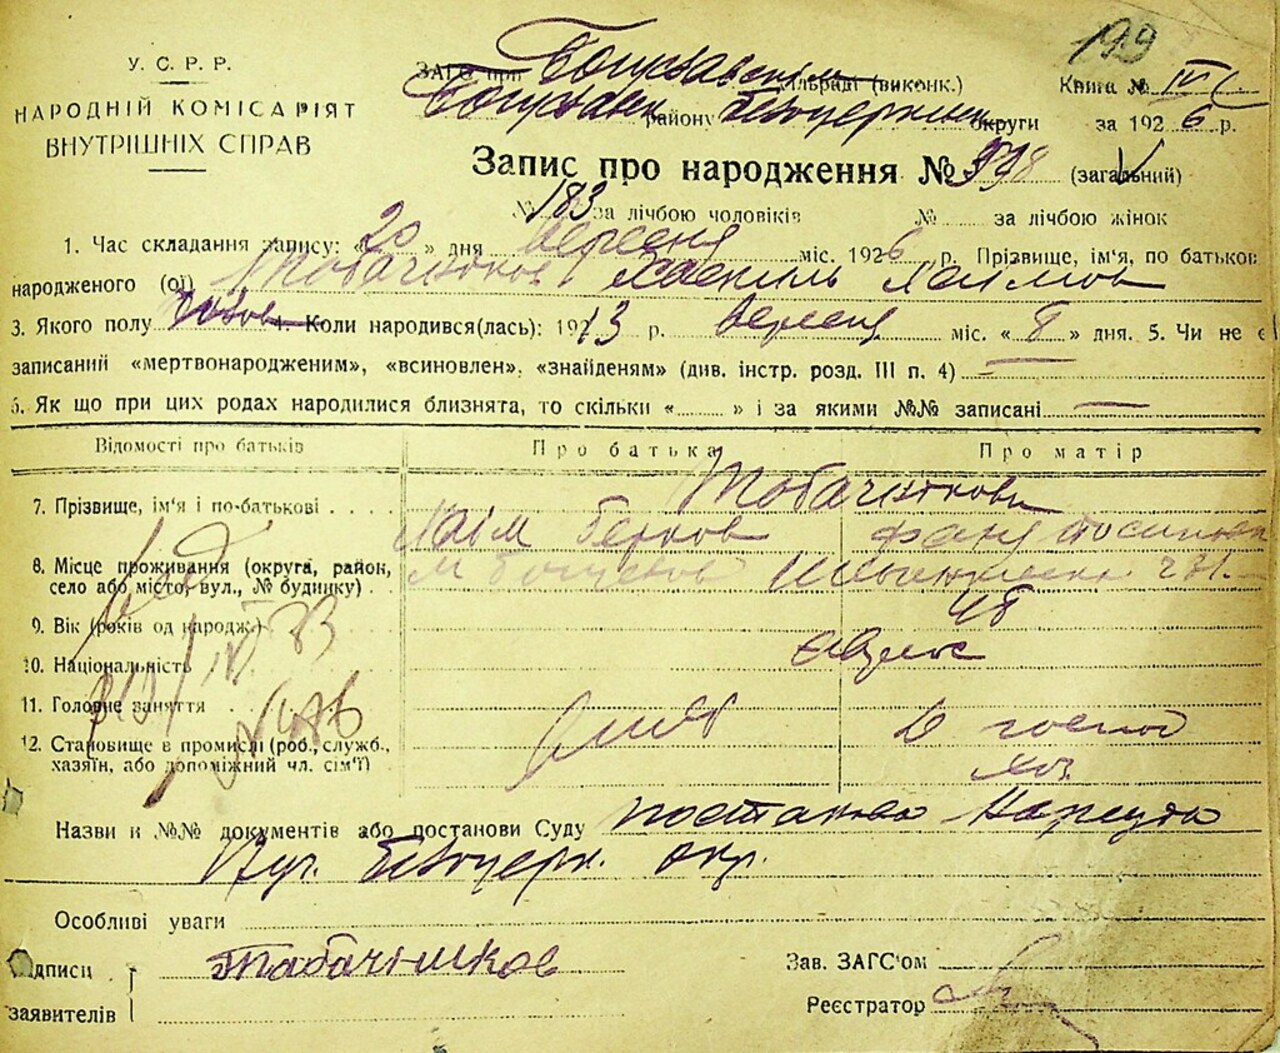 199
У. С. Р. Р.
НАРОДНІЙ КОМІСАРІЯТ
ВНУТРІШНІХ СПРАВ
ЗАГС при Богуславськім сільраді (виконк.) Книга № IV
Богуславск. району Білоцерківськ. округи за 1926 р.
Запис про народження № 398 (загальний)
№ 183 за лічбою чоловіків № за лічбою жінок
1. Час складання запису: «20» дня вересня міс. 1926 р. Прізвище, ім'я, по батькові
народженого (ої) Табачніков Хаскиль Хаімов
3. Якого полу чолов. 4. Коли народився(лась): 1913 р. вересня міс. «8» дня. 5. Чи не є
записаний «мертвонародженим», «всиновлен», «знайденям» (див. інстр. розд. III п. 4) —
6. Як що при цих родах народилися близнята, то скільки « » і за якими №№ записані —
Відомості про батьків Про батька Про матір
Табачнікови
7. Прізвище, ім'я і по-батькові Хаім Берков Фаня
8. Місце проживання (округа, район,
село або місто, вул., № будинку) м Богуслав
9. Вік (років од народж.) 48
10. Національність євреї
11. Головне заняття
12. Становище в промислі (роб., служб.,
хазяїн, або допоміжний чл. сім'ї)
Назви и №№ документів або постанови Суду постанова Нарсуда
Білоцерк. окр.
Особливі уваги
Підписи Табачніков Зав. ЗАГС'ом
заявителів Реєстратор